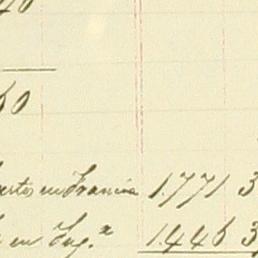 40
60
en Francia 1.771 3
en Ing.ª 1.446 3